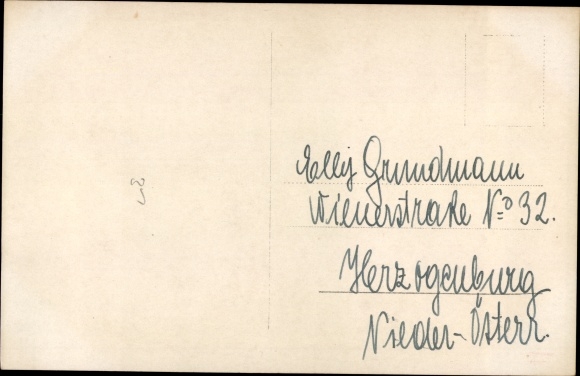 Elly Grundmann
Wienerstraße No 32.
Herzogenburg
Nieder-Österr.